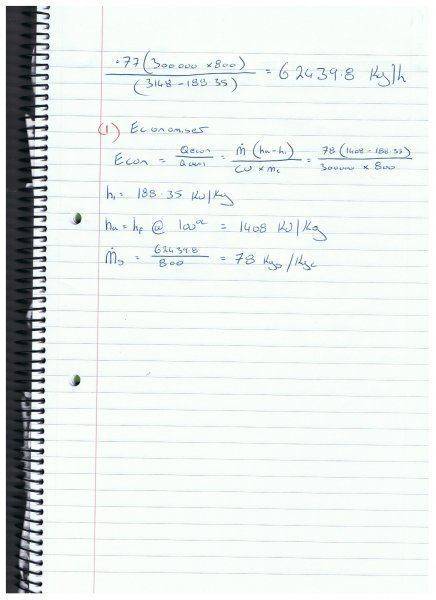 .77 (300000 x 800) / (3148 - 188.35) = 62439.8 Kg/h
(1) Economiser
Econ = Qecon / Qcons = ṁ (ha - hi) / CV x mc = 78 (1408 - 188.35) / 300000 x 800
hi = 188.35 KJ/Kg
ha = hf @ 100 = 1408 KJ/Kg
ṁs = 62439.8 / 800 = 78 Kgs / Kgc